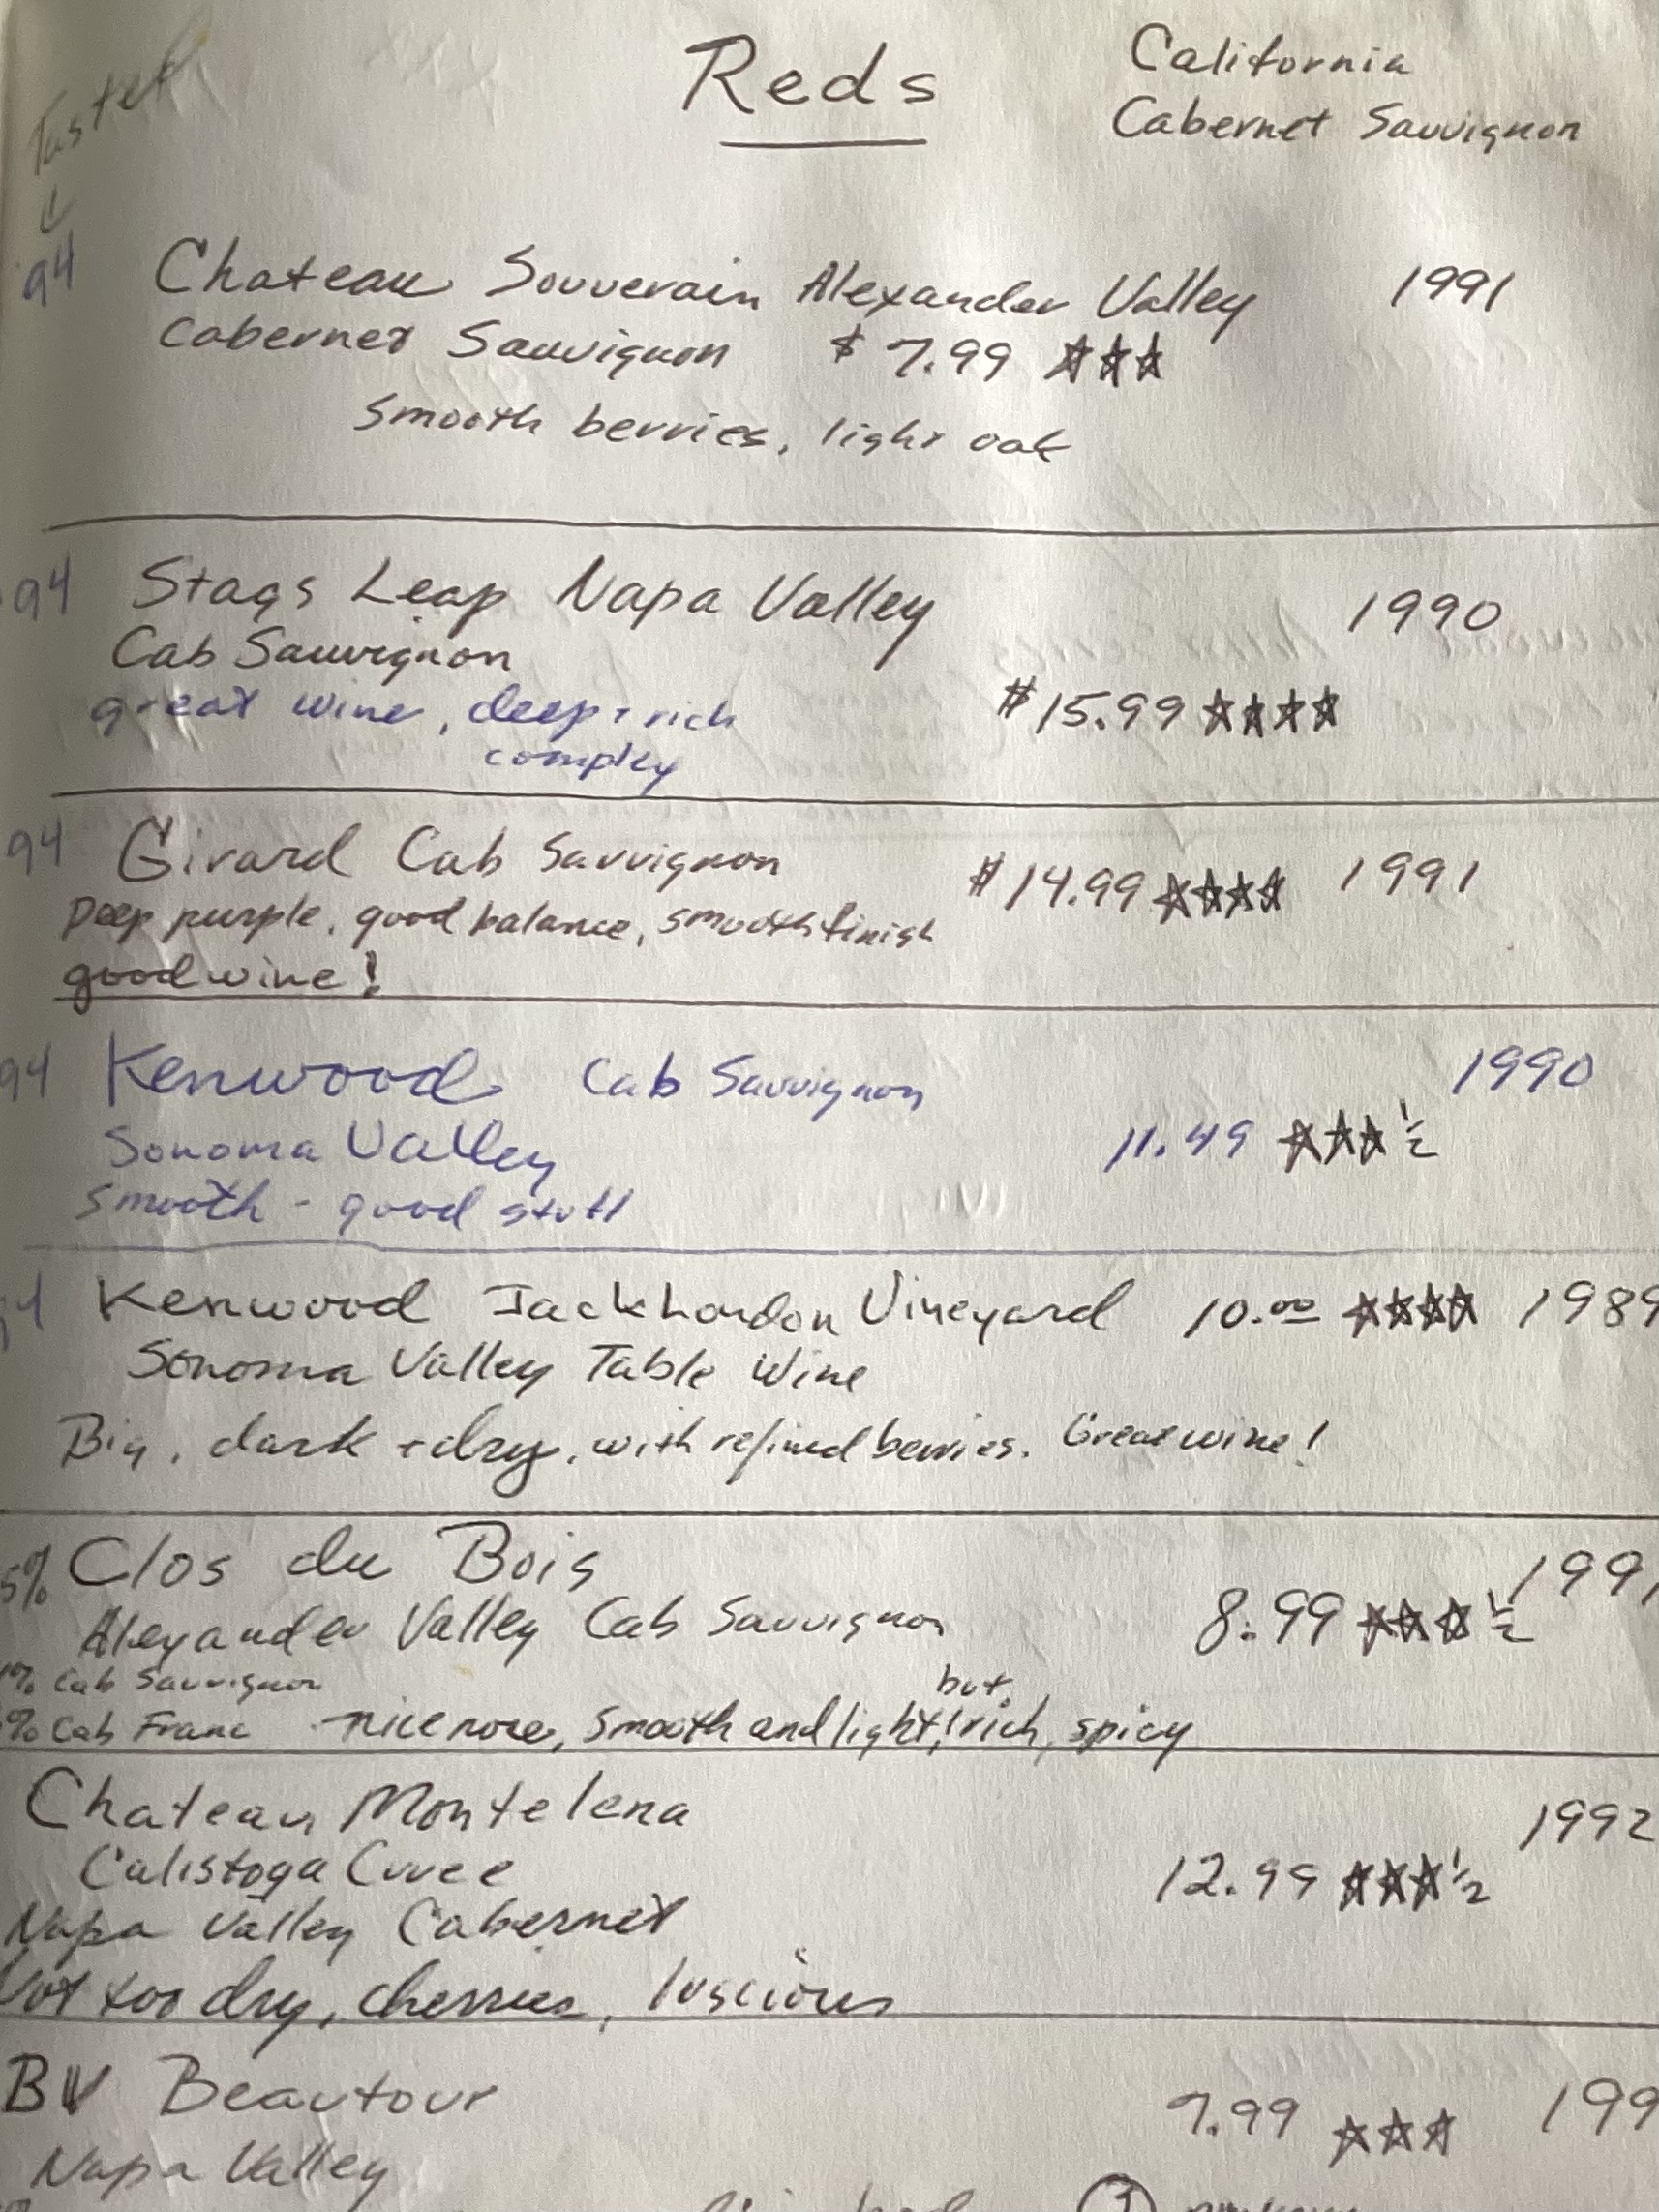 Reds
California
Cabernet Sauvignon
Tasted
↓
'94 Chateau Souverain Alexander Valley 1991
Cabernet Sauvignon $7.99 ★★★
Smooth berries, light oak
94 Stags Leap Napa Valley 1990
Cab Sauvignon
great wine, deep + rich $15.99 ★★★★
complex
94 Girard Cab Sauvignon $14.99 ★★★★ 1991
Deep purple, good balance, smooth finish
good wine!
94 Kenwood Cab Sauvignon 1990
Sonoma Valley 11.49 ★★★½
Smooth - good stuff
94 Kenwood Jack London Vineyard 10.00 ★★★★ 1989
Sonoma Valley Table Wine
Big, dark + dry, with refined berries. Great wine!
Clos du Bois 1991
Alexander Valley Cab Sauvignon 8.99 ★★★½
% Cab Sauvignon
but
% Cab Franc nice nose, smooth and light, rich, spicy
Chateau Montelena 1992
Calistoga Cuvee 12.99 ★★★½
Napa Valley Cabernet
Not too dry, cherries, luscious
BV Beautour 7.99 ★★★ 199
Napa Valley